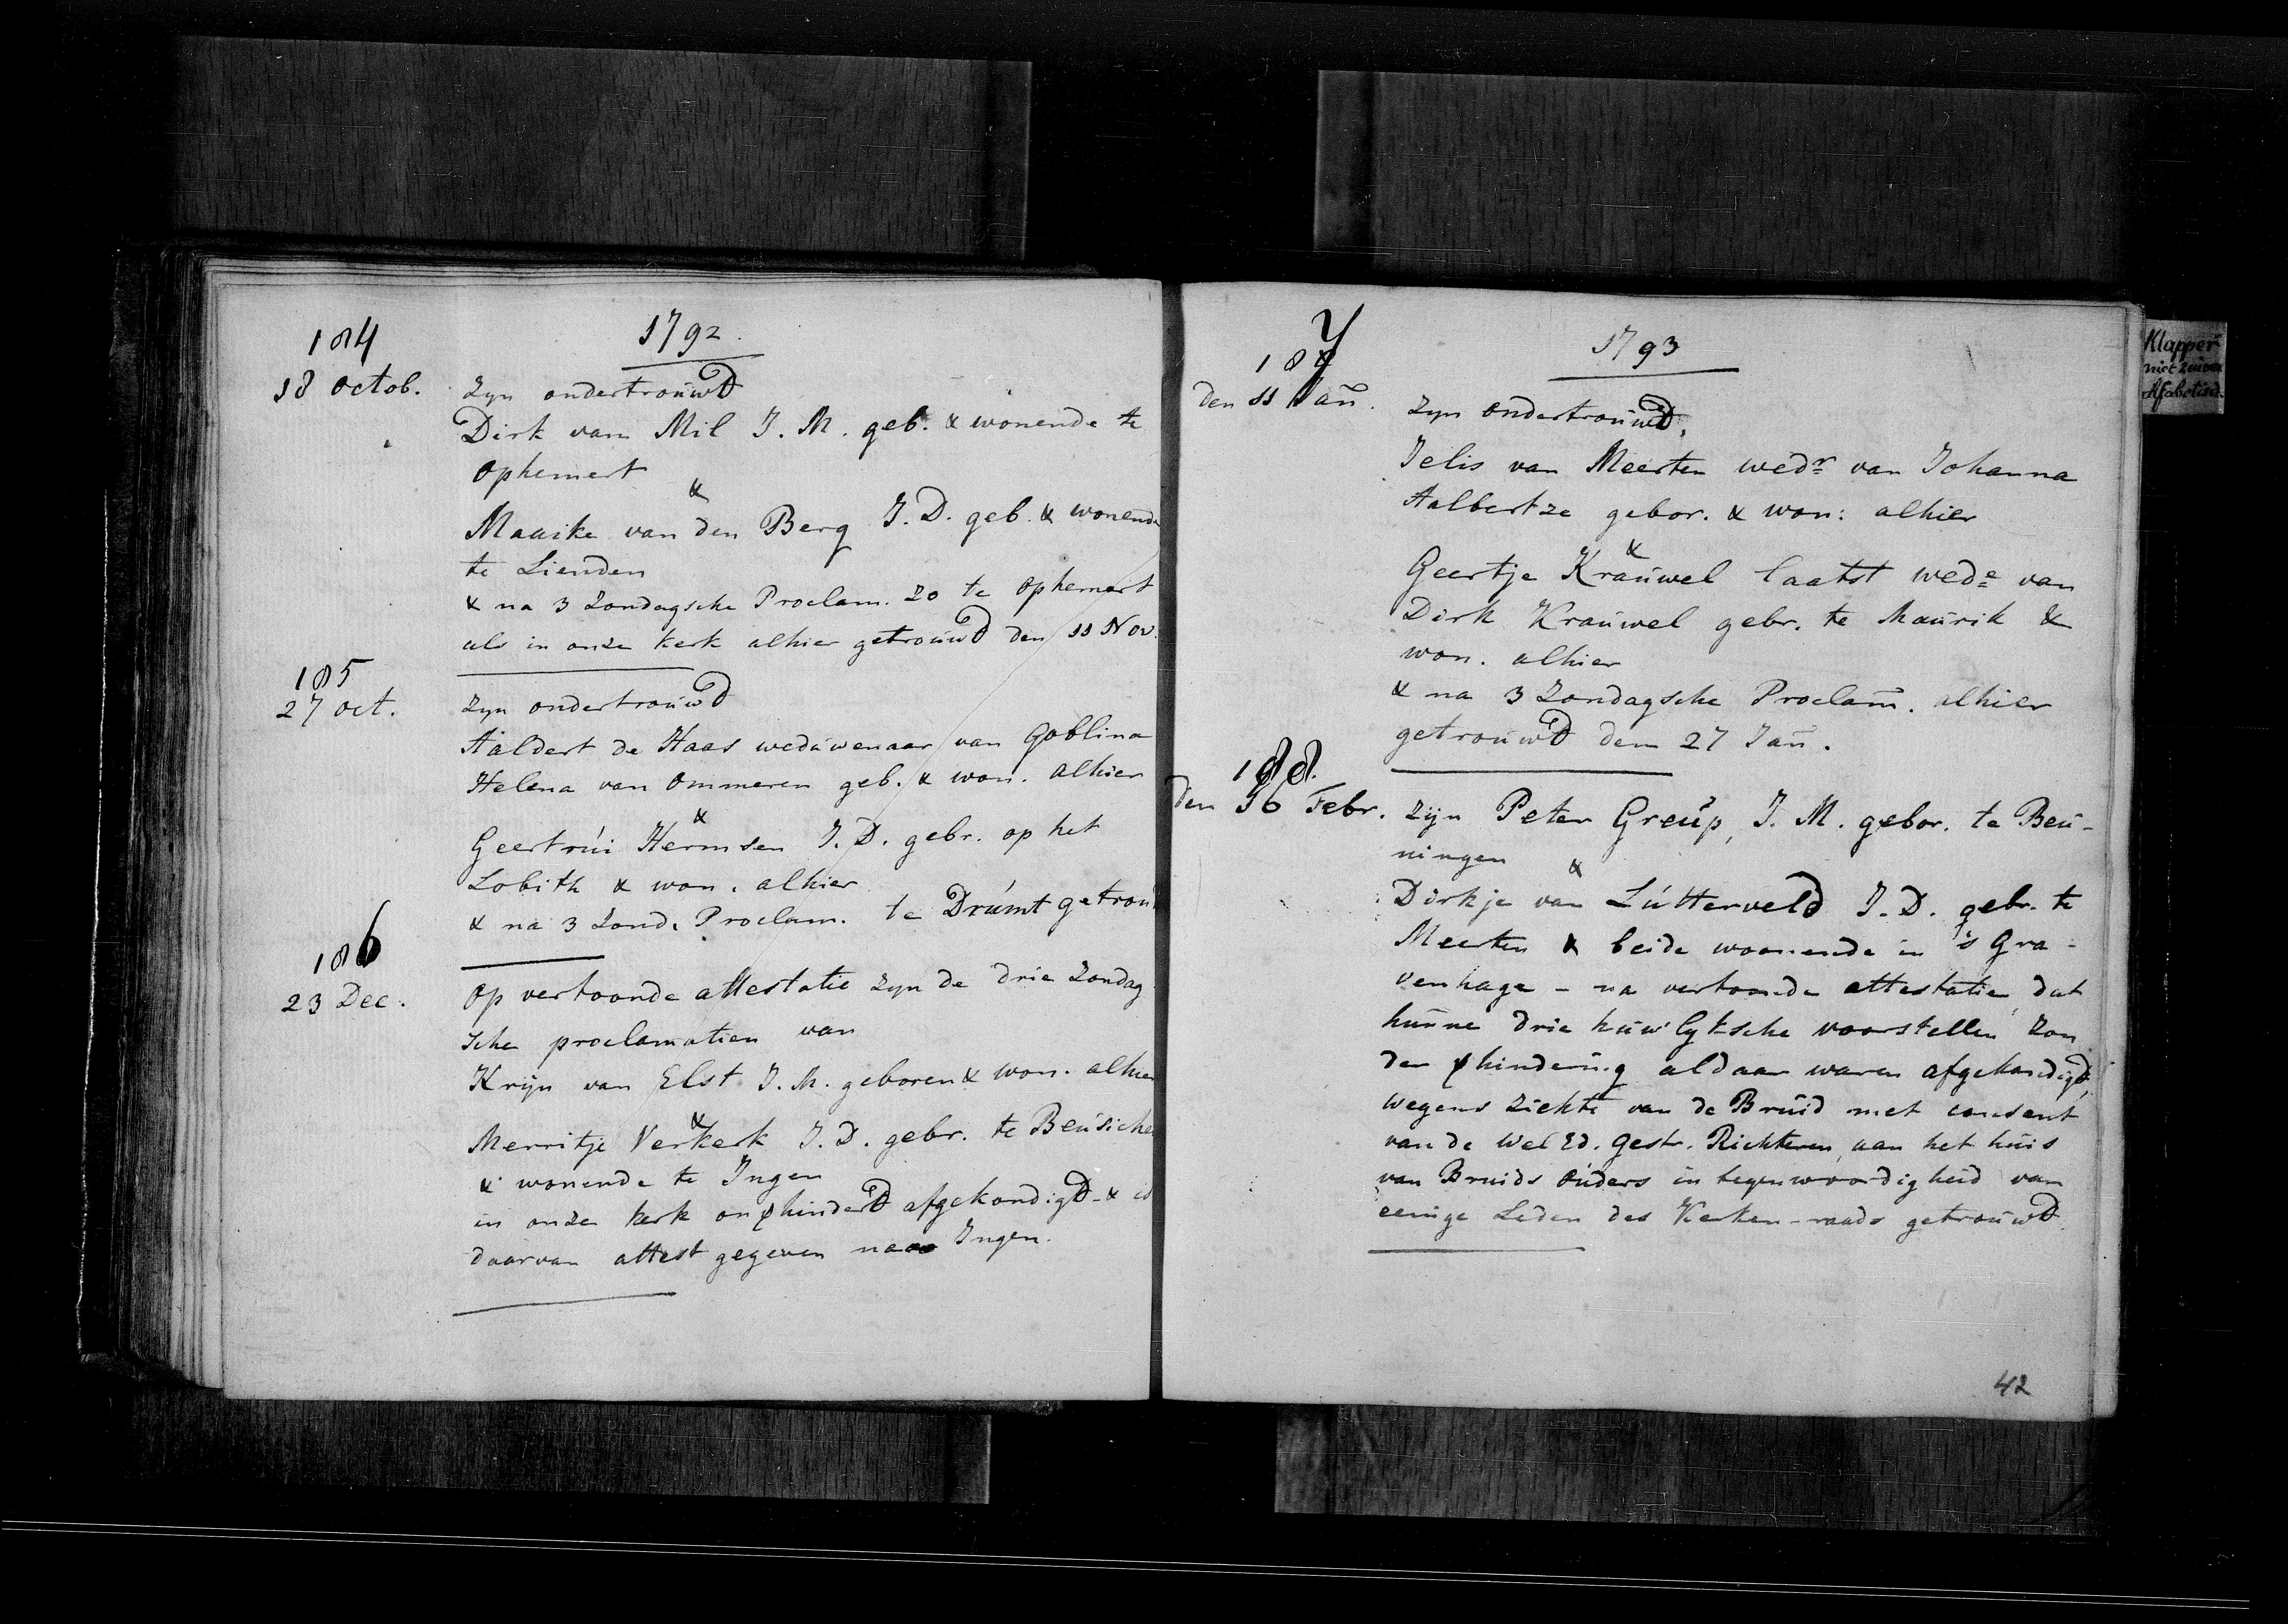 184
1792.
18 octob.
Zyn ondertrouwd
Dirk van Mil J. M. geb. & wonende te
ophemert
&
Maaike van den Berg J. D. geb. & wonende
te Lienden
& na 3 Zondagsche Proclam. zo te ophemert
als in onze kerk alhier getrouwd den 11 Nov.
185
27 oct.
Zyn ondertrouwd
Aaldert de Haas weduwenaar van Goblina
Helena van Ommeren geb. & won. alhier
&
Geertrui Hermsen J. D. gebr. op het
Lobith & won. alhier
& na 3 Zond. Proclam. te Drumt getrou
186
23 Dec.
Op vertoonde attestatie zyn de drie Zondag
sche proclamatien van
Krijn van Elst J. M. geboren & won. alhier
&
Merritje Verkerk J. D. gebr. te Beusichem
& wonende te Ingen
in onze kerk onhinderd afgekondigd - & is
daarvan attest gegeven na Ingen.
187
1793
den 11 Jan.
Zyn ondertrouwd,
Jelis van Meerten wedr van Johanna
Aalbertze gebor. & won: alhier
&
Geertje Krauwel laatst wede van
Dirk Krauwel gebr. te Maurik &
won. alhier
& na 3 Zondagsche Proclam. alhier
getrouwd den 27 Jan.
188.
den 16 Febr.
Zijn Peter Greup, J. M. gebor. te Beu-
ningen
&
Dirkje van Lutterveld J. D. gebr. te
Meerten & beide woonende in 's Gra-
venhage - na vertoonde attestatie, dat
hunne drie huwlyksche voorstellen zon
der hindering aldaar waren afgekondigd,
wegens ziekte van de Bruid met consent
van de Wel Ed. Gestr. Richteren, aan het huis
van Bruids Ouders in tegenwoordigheid van
eenige Leden des Kerken-raads getrouwd.
42
Klapper
niet zuiver
Alfabetisch.